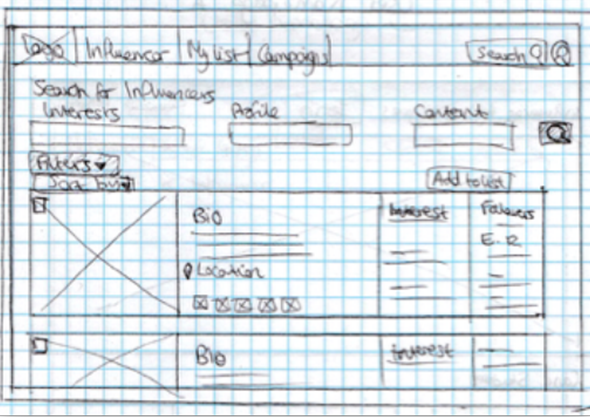 Logo Influencer My list Campaigns Search
Search for Influencers
Interests Profile Content
Filters
Sort by Add to list
Bio Interest Followers
E.R
Location
Bio Interest